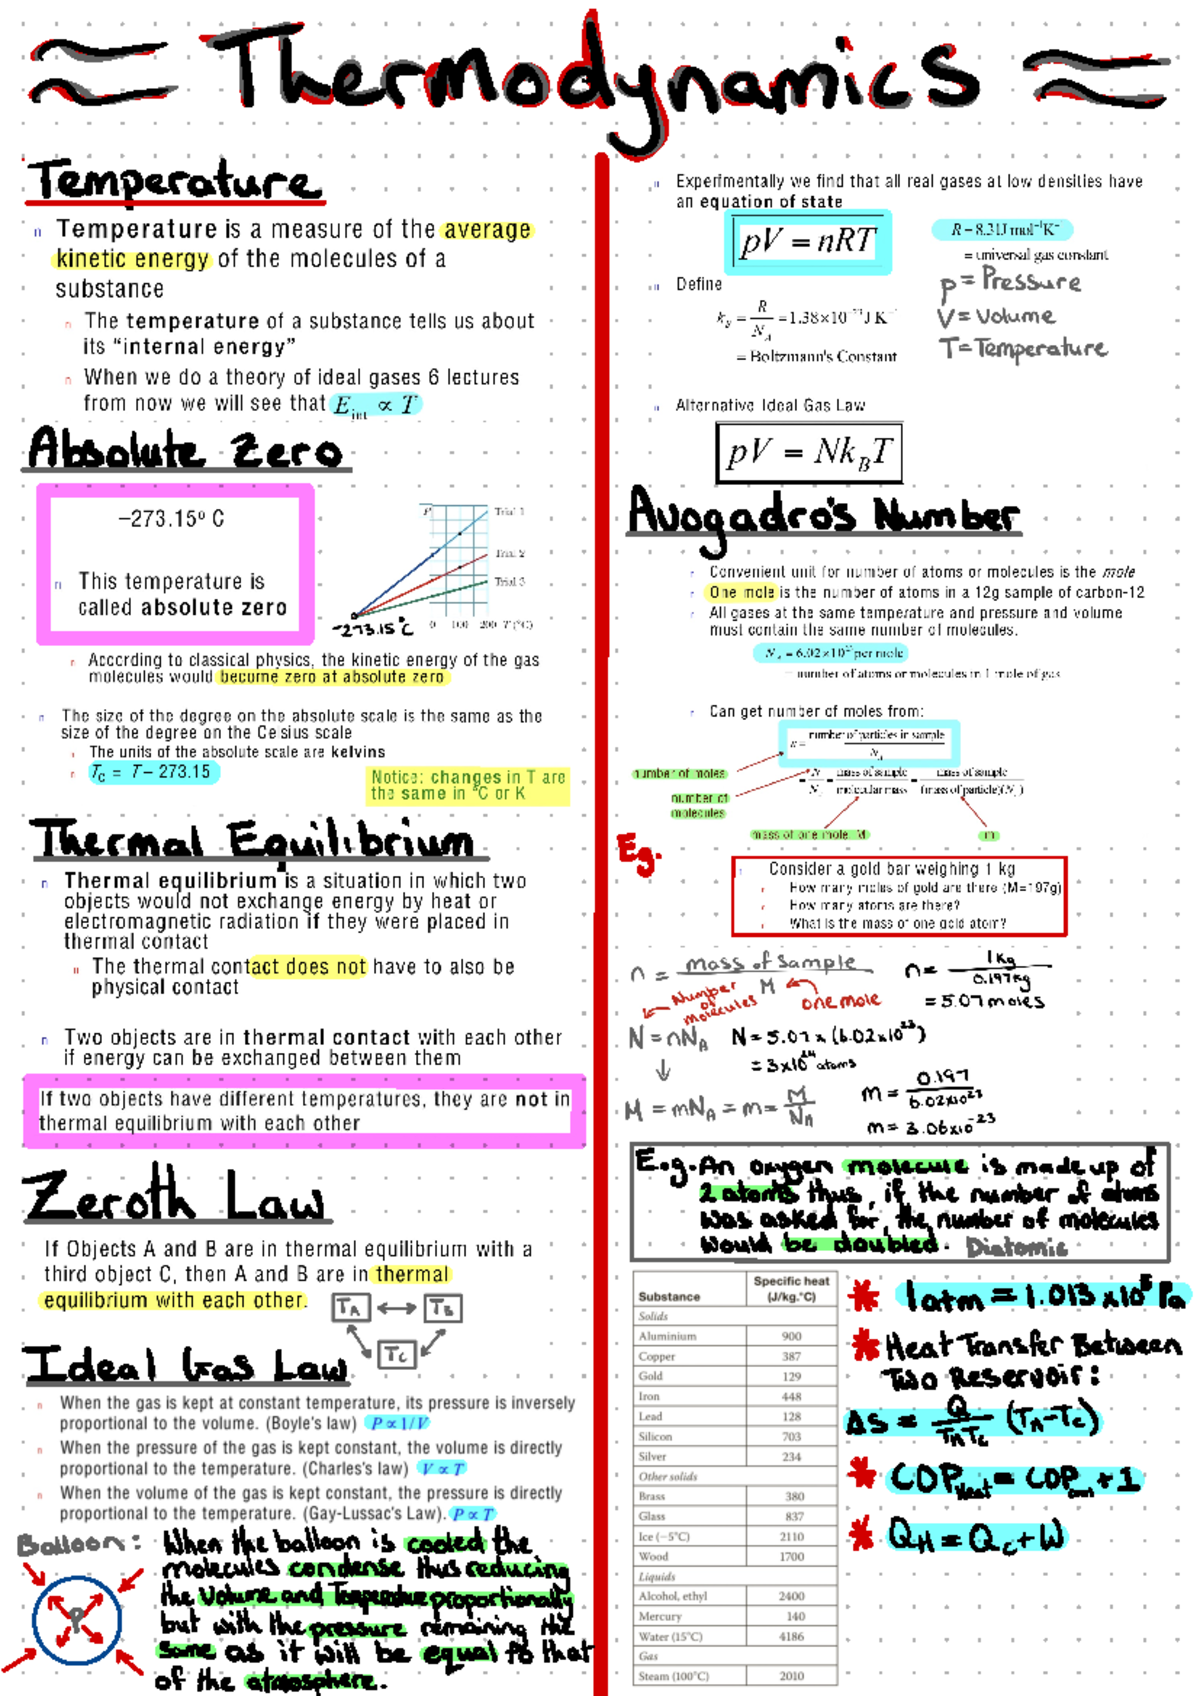 Thermodynamics
Temperature
Temperature is a measure of the average
kinetic energy of the molecules of a
substance
The temperature of a substance tells us about
its “internal energy”
When we do a theory of ideal gases 6 lectures
from now we will see that E_int ∝ T
Absolute Zero
–273.15º C
This temperature is
called absolute zero
P
Trial 1
Trial 2
Trial 3
-273.15°C 0 100 200 T (°C)
According to classical physics, the kinetic energy of the gas
molecules would become zero at absolute zero
The size of the degree on the absolute scale is the same as the
size of the degree on the Celsius scale
The units of the absolute scale are kelvins
T_C = T – 273.15
Notice: changes in T are
the same in °C or K
Thermal Equilibrium
Thermal equilibrium is a situation in which two
objects would not exchange energy by heat or
electromagnetic radiation if they were placed in
thermal contact
The thermal contact does not have to also be
physical contact
Two objects are in thermal contact with each other
if energy can be exchanged between them
If two objects have different temperatures, they are not in
thermal equilibrium with each other
Zeroth Law
If Objects A and B are in thermal equilibrium with a
third object C, then A and B are in thermal
equilibrium with each other.
T_A T_B
T_C
Ideal Gas Law
When the gas is kept at constant temperature, its pressure is inversely
proportional to the volume. (Boyle's law) P ∝ 1/V
When the pressure of the gas is kept constant, the volume is directly
proportional to the temperature. (Charles's law) V ∝ T
When the volume of the gas is kept constant, the pressure is directly
proportional to the temperature. (Gay-Lussac's Law). P ∝ T
Balloon: When the balloon is cooled the
molecules condense thus reducing
the volume and Temperature proportionally
but with the pressure remaining the
same as it will be equal to that
of the atmosphere.
P
Experimentally we find that all real gases at low densities have
an equation of state
pV = nRT
R = 8.31J mol⁻¹K⁻¹
= universal gas constant
p = Pressure
V = Volume
T = Temperature
Define
k_B = R/N_A = 1.38×10⁻²³ J K⁻¹
= Boltzmann's Constant
Alternative Ideal Gas Law
pV = Nk_BT
Avogadro's Number
Convenient unit for number of atoms or molecules is the mole
One mole is the number of atoms in a 12g sample of carbon-12
All gases at the same temperature and pressure and volume
must contain the same number of molecules.
N_A = 6.02×10²³ per mole
= number of atoms or molecules in 1 mole of gas
Can get number of moles from:
n = number of particles in sample / N_A
number of moles
= N/N_A = mass of sample/molecular mass = mass of sample/(mass of particle)(N_A)
number of
molecules
mass of one mole, M
m
Eg.
Consider a gold bar weighing 1 kg
How many moles of gold are there (M=197g)
How many atoms are there?
What is the mass of one gold atom?
n = mass of sample / M
Number
of
molecules
one mole
n = 1kg / 0.197kg
= 5.07 moles
N = nN_A N = 5.07 x (6.02x10²³)
= 3x10²⁴ atoms
M = mN_A = m = M/N_A
m = 0.197 / 6.02x10²³
m = 3.06x10⁻²³
E.g. An oxygen molecule is made up of
2 atoms thus, if the number of atoms
was asked for, the number of molecules
would be doubled. Diatomic
Substance Specific heat (J/kg.°C)
Solids
Aluminium 900
Copper 387
Gold 129
Iron 448
Lead 128
Silicon 703
Silver 234
Other solids
Brass 380
Glass 837
Ice (−5°C) 2110
Wood 1700
Liquids
Alcohol, ethyl 2400
Mercury 140
Water (15°C) 4186
Gas
Steam (100°C) 2010
* 1atm = 1.013 x10⁵ Pa
* Heat Transfer Between
Two Reservoir:
ΔS = Q/T_HT_C (T_H-T_C)
* COP_Heat = COP + 1
* Q_H = Q_C + W